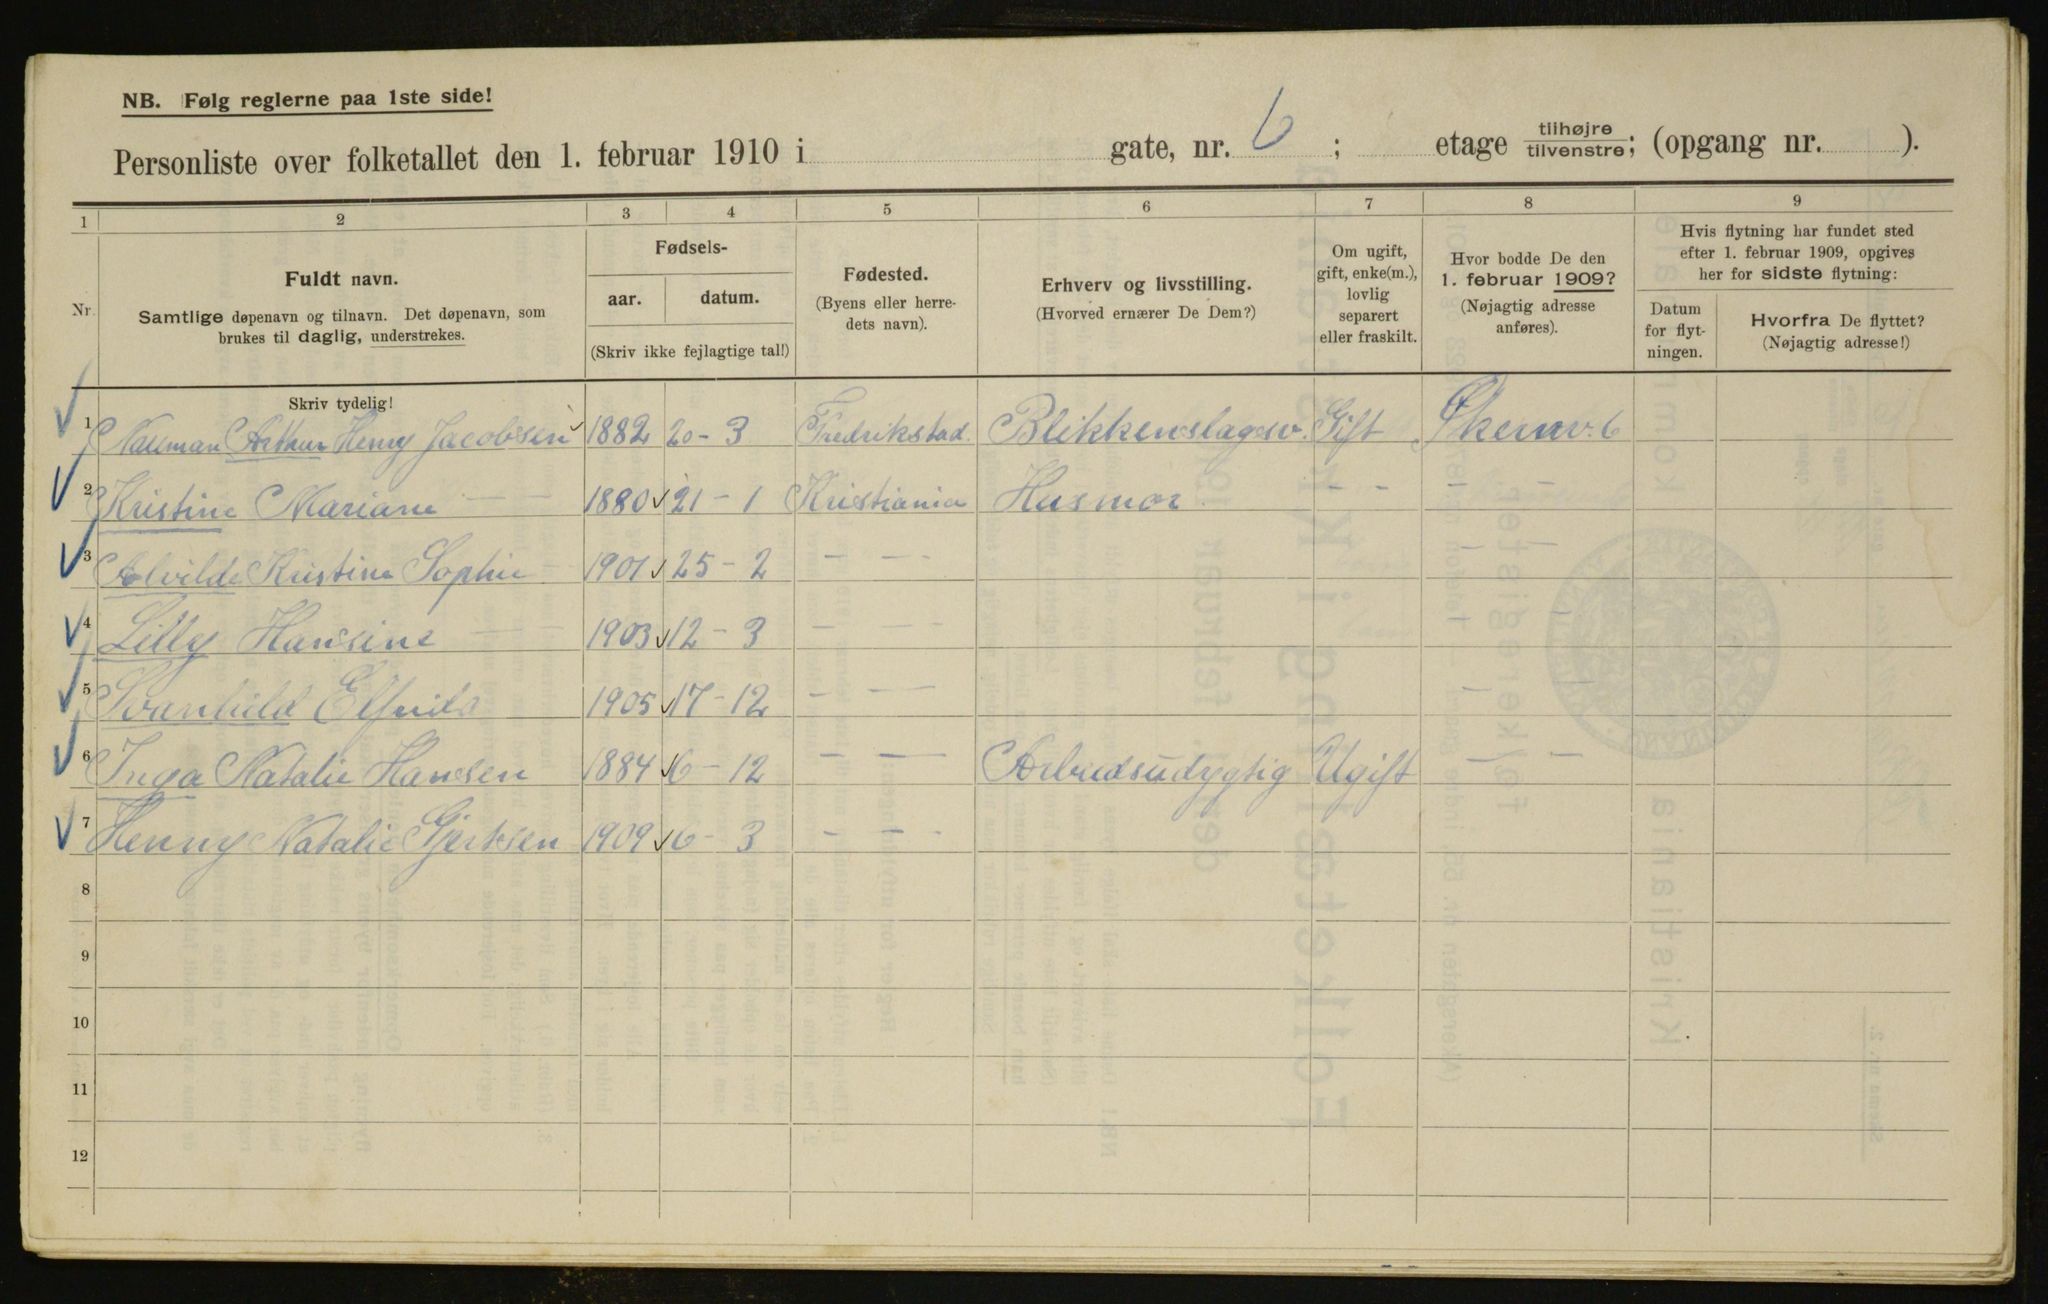 NB. Følg reglerne paa 1ste side!
Personliste over folketallet den 1. februar 1910 i gate, nr. 6 ; etage tilhøjre tilvenstre; (opgang nr. ).
1 2 3 4 5 6 7 8 9
Nr. Fuldt navn. Samtlige døpenavn og tilnavn. Det døpenavn, som brukes til daglig, understrekes.
Fødsels- aar. datum. (Skriv ikke fejlagtige tal!)
Fødested. (Byens eller herredets navn).
Erhverv og livsstilling. (Hvorved ernærer De Dem?)
Om ugift, gift, enke(m.), lovlig separert eller fraskilt.
Hvor bodde De den 1. februar 1909? (Nøjagtig adresse anføres).
Hvis flytning har fundet sted efter 1. februar 1909, opgives her for sidste flytning:
Datum for flytningen. Hvorfra De flyttet? (Nøjagtig adresse!)
Skriv tydelig!
1 Nauman Arthur Henry Jacobsen 1882 20-3 Fredrikstad. Blikkenslagersv. Gift Økernv. 6
2 Kristine Mariane — — 1880 21-1 Kristiania Husmor - - - -
3 Alvilde Kristine Sophie 1901 25-2 — —
4 Lilly Hansine 1903 12-3 — —
5 Svanhild Elfrida 1905 17-12 — —
6 Inga Natalie Hansen 1884 6-12 — — Arbeidsudygtig Ugift — —
7 Henny Natalie Gjertsen 1909 6-3 - - -
8
9
10
11
12